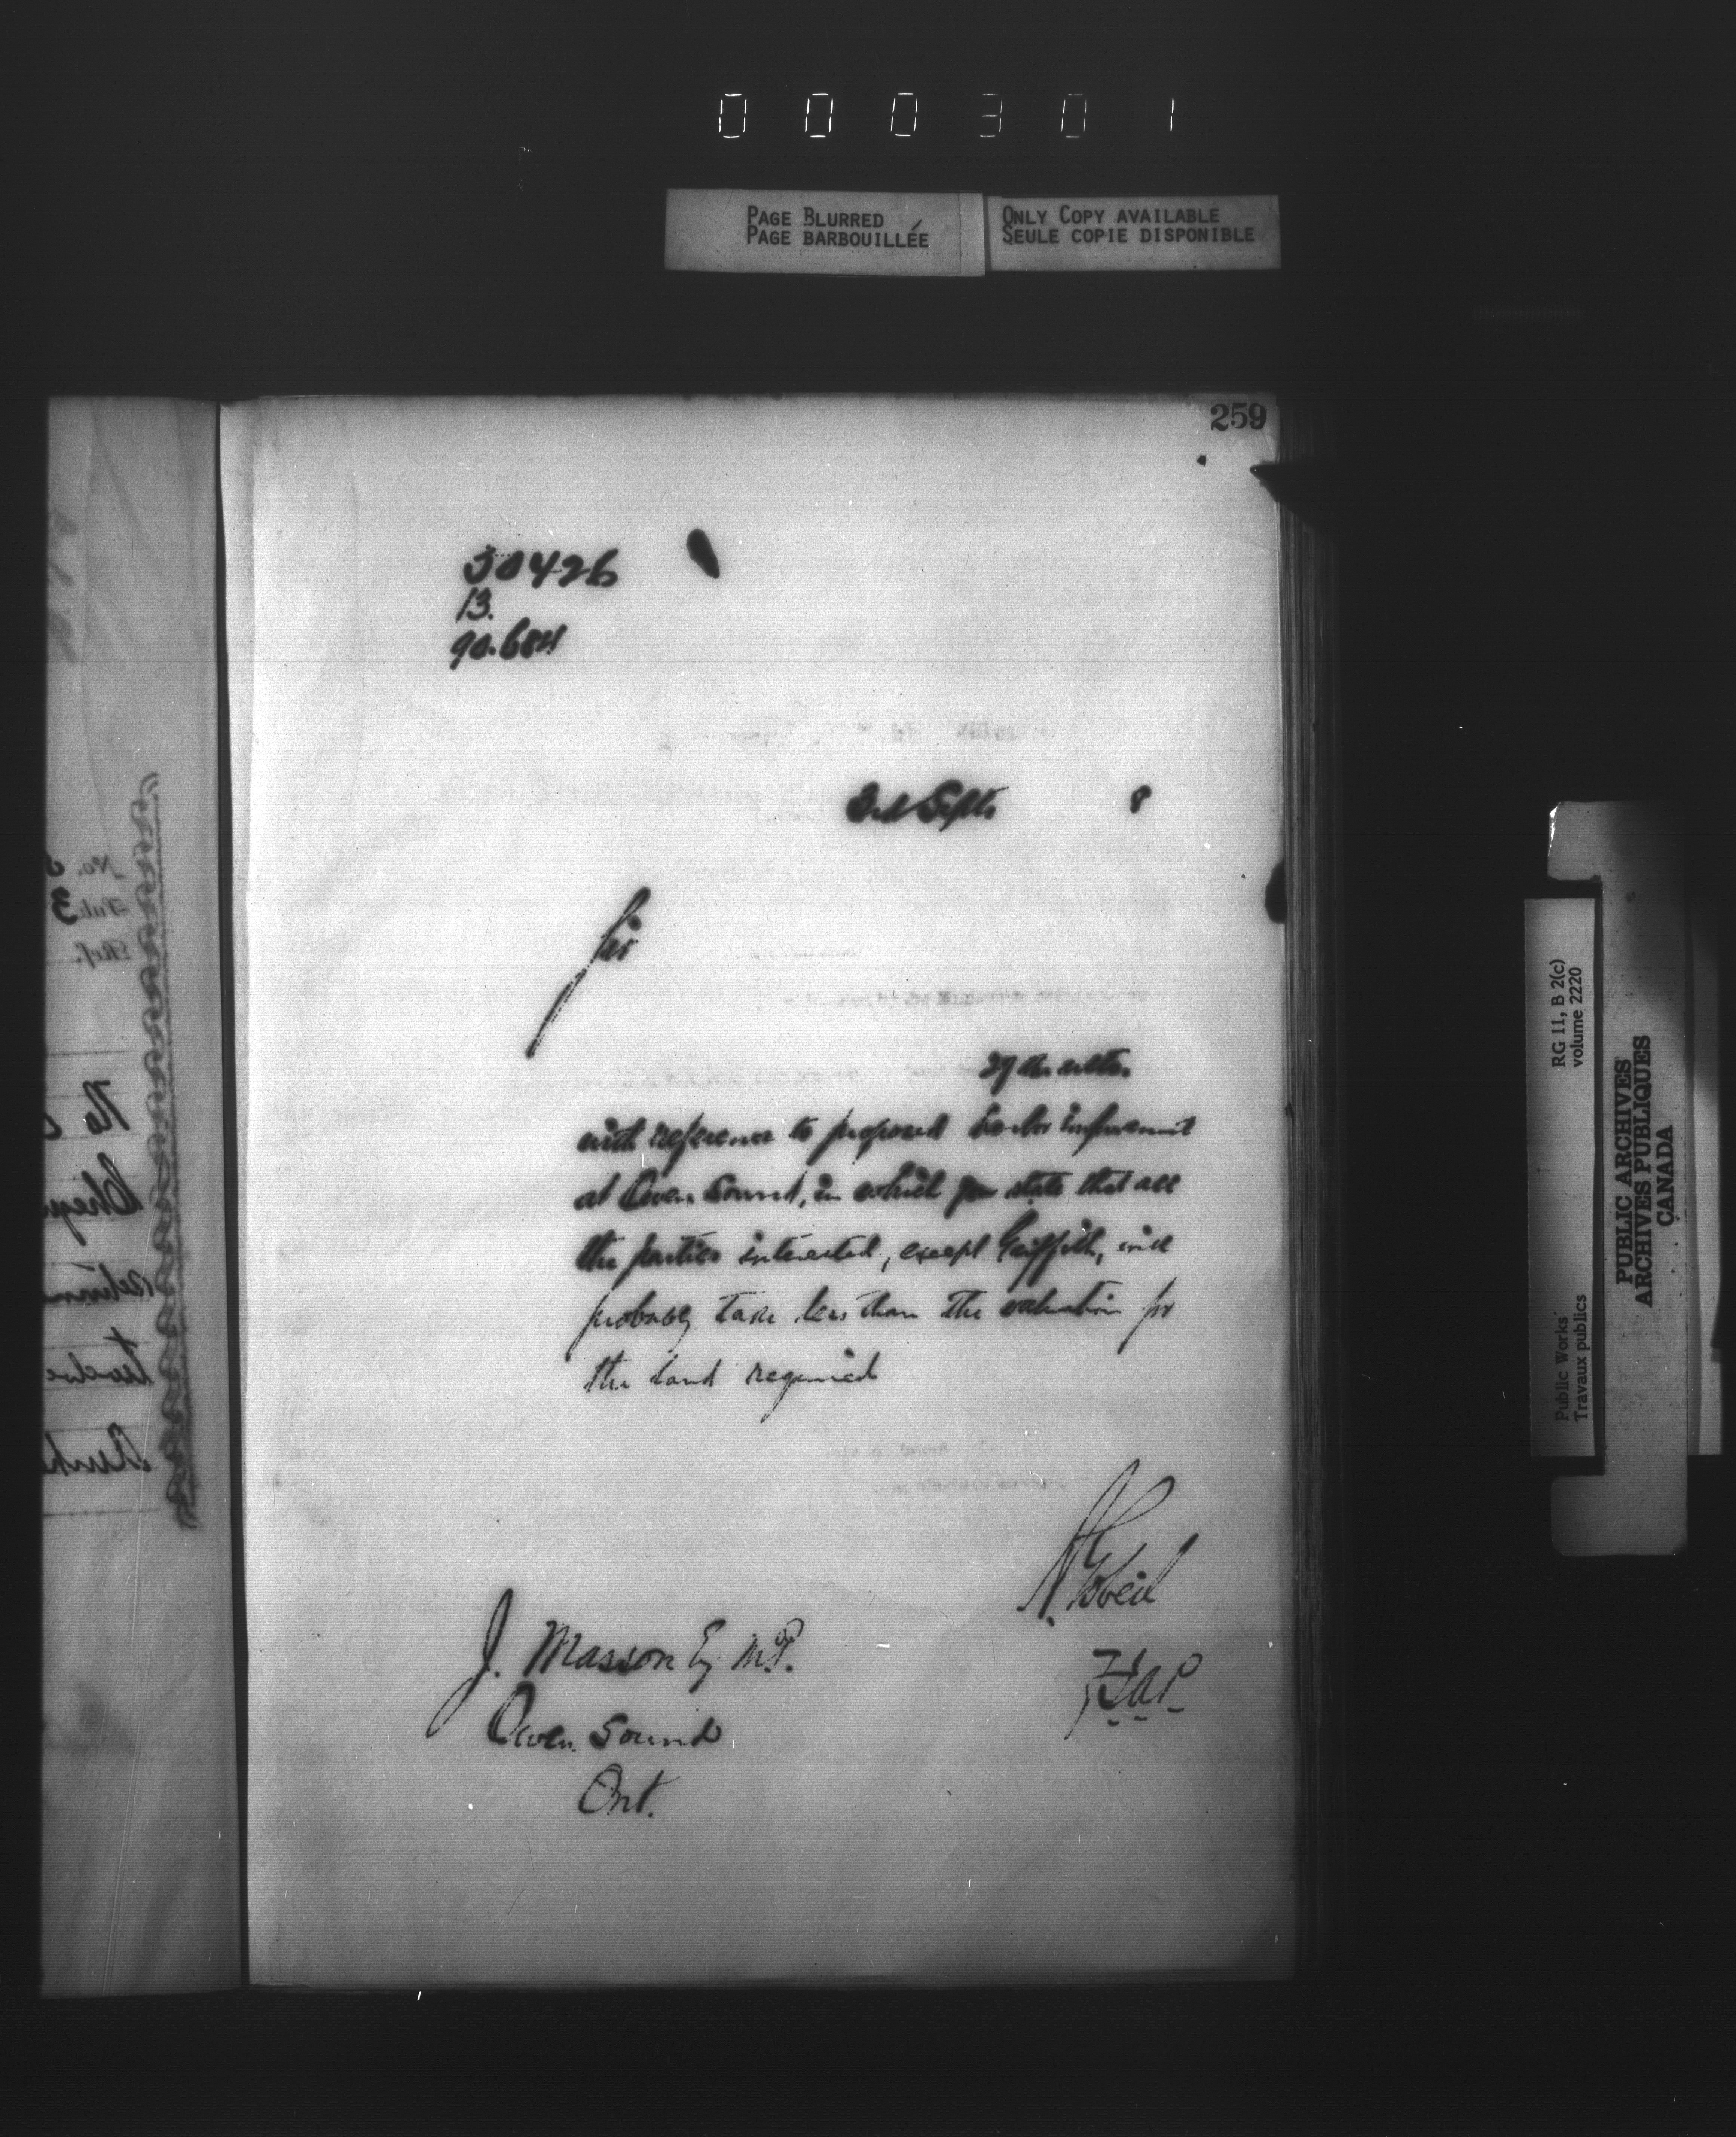 000301
PAGE BLURRED
PAGE BARBOUILLÉE
ONLY COPY AVAILABLE
SEULE COPIE DISPONIBLE
259
30426
13.
90.684
3rd Septr. 8
Sir
29th ulto.
with reference to proposed harbor improvement
at Owen Sound, in which you state that all
the parties interested, except Griffith, will
probably take less than the valuation for
the land required
A Gobeil
J. Masson Esq M.P.
Owen Sound
Ont.
RG 11, B 2(c)
volume 2220
Public Works
Travaux publics
PUBLIC ARCHIVES
ARCHIVES PUBLIQUES
CANADA